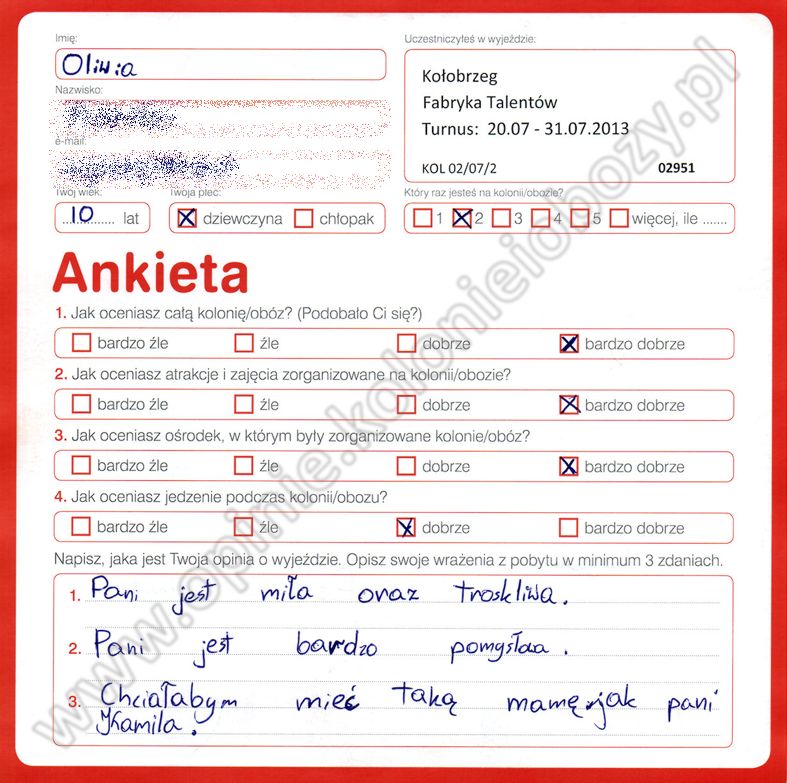 Imię:
Uczestniczyłeś w wyjeździe:
Oliwia
Kołobrzeg
Fabryka Talentów
Turnus: 20.07 - 31.07.2013
KOL 02/07/2
02951
Nazwisko:
e-mail:
Twój wiek:
Twoja płeć:
Który raz jesteś na kolonii/obozie?
10 lat
dziewczyna
chłopak
1 2 3 4 5 więcej, ile .......
Ankieta
1. Jak oceniasz całą kolonię/obóz? (Podobało Ci się?)
bardzo źle źle dobrze bardzo dobrze
2. Jak oceniasz atrakcje i zajęcia zorganizowane na kolonii/obozie?
bardzo źle źle dobrze bardzo dobrze
3. Jak oceniasz ośrodek, w którym były zorganizowane kolonie/obóz?
bardzo źle źle dobrze bardzo dobrze
4. Jak oceniasz jedzenie podczas kolonii/obozu?
bardzo źle źle dobrze bardzo dobrze
Napisz, jaka jest Twoja opinia o wyjeździe. Opisz swoje wrażenia z pobytu w minimum 3 zdaniach.
1. Pani jest miła oraz troskliwa.
2. Pani jest bardzo pomysłowa.
3. Chciałabym mieć taką mamę jak pani
Kamila.
www.opinie.kolonieiobozy.pl